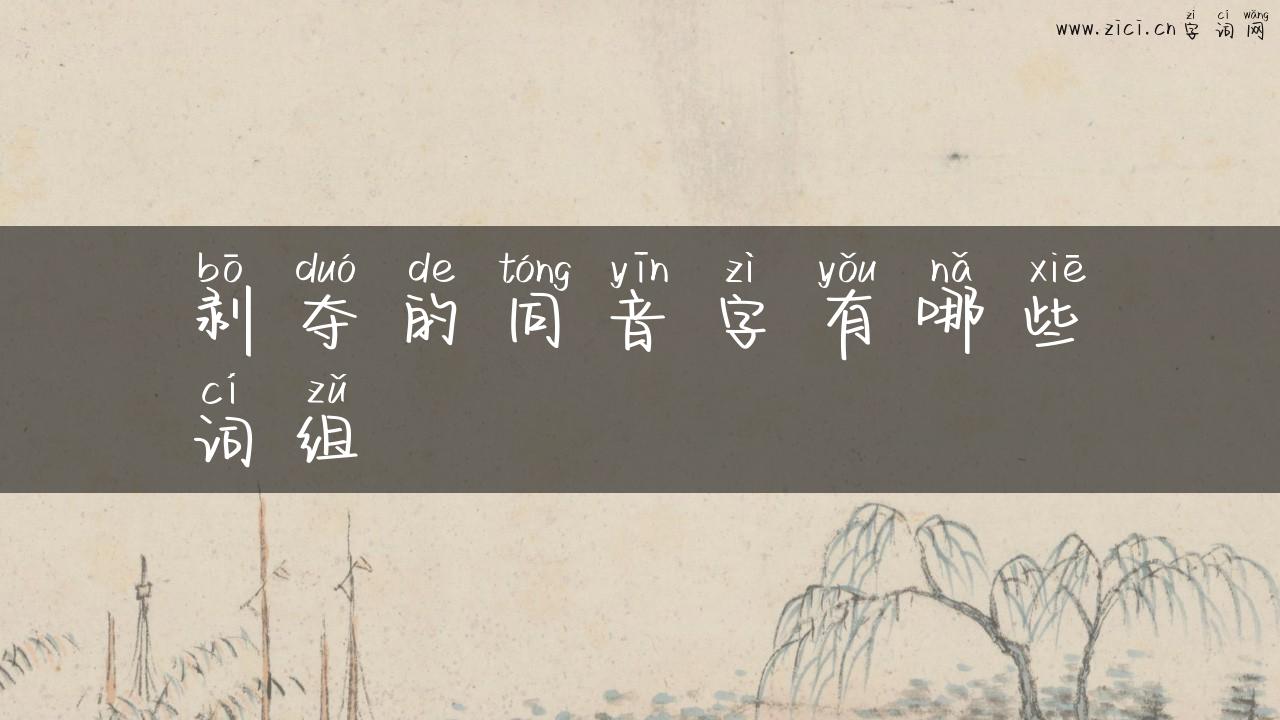 zì cí wǎng
www.zici.cn 字 词 网
bō duó de tóng yīn zì yǒu nǎ xiē
剥 夺 的 同 音 字 有 哪 些
cí zǔ
词 组